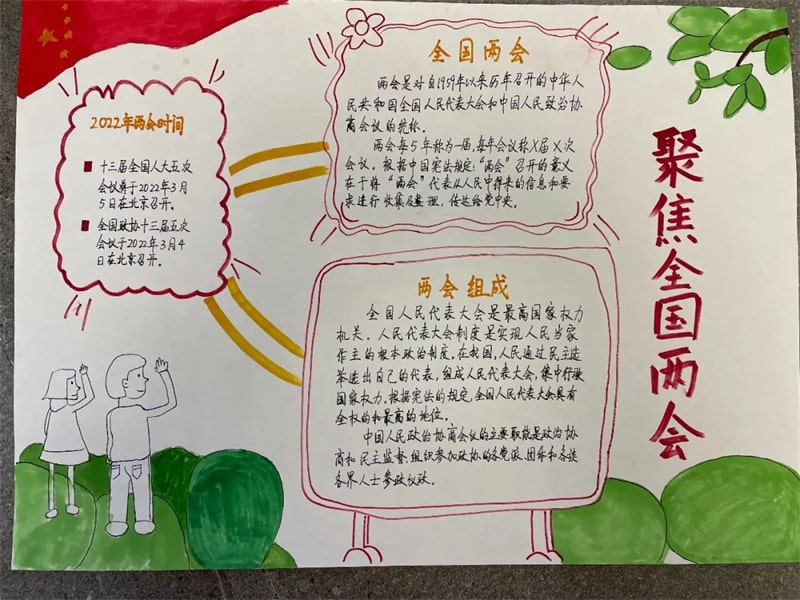 全国两会
两会是对自1959年以来历年召开的中华人
民共和国全国人民代表大会和中国人民政治协
商会议的统称。
两会每5年称为一届,每年会议称X届X次
会议。根据中国宪法规定:“两会”召开的意义
在于将“两会”代表从人民中得来的信息和要
求进行收集及整理,传达给党中央。
2022年两会时间
十三届全国人大五次
会议将于2022年3月
5日在北京召开。
全国政协十三届五次
会议于2022年3月4
日在北京召开。
两会组成
全国人民代表大会是最高国家权力
机关。人民代表大会制度是实现人民当家
作主的根本政治制度。在我国,人民通过民主选
举选出自己的代表,组成人民代表大会,集中行驶
国家权力。根据宪法的规定,全国人民代表大会具有
全权的和最高的地位。
中国人民政治协商会议的主要职能是政治协
商和民主监督,组织参加政协的各党派、团体和各族
各界人士参政议政。
聚焦全国两会